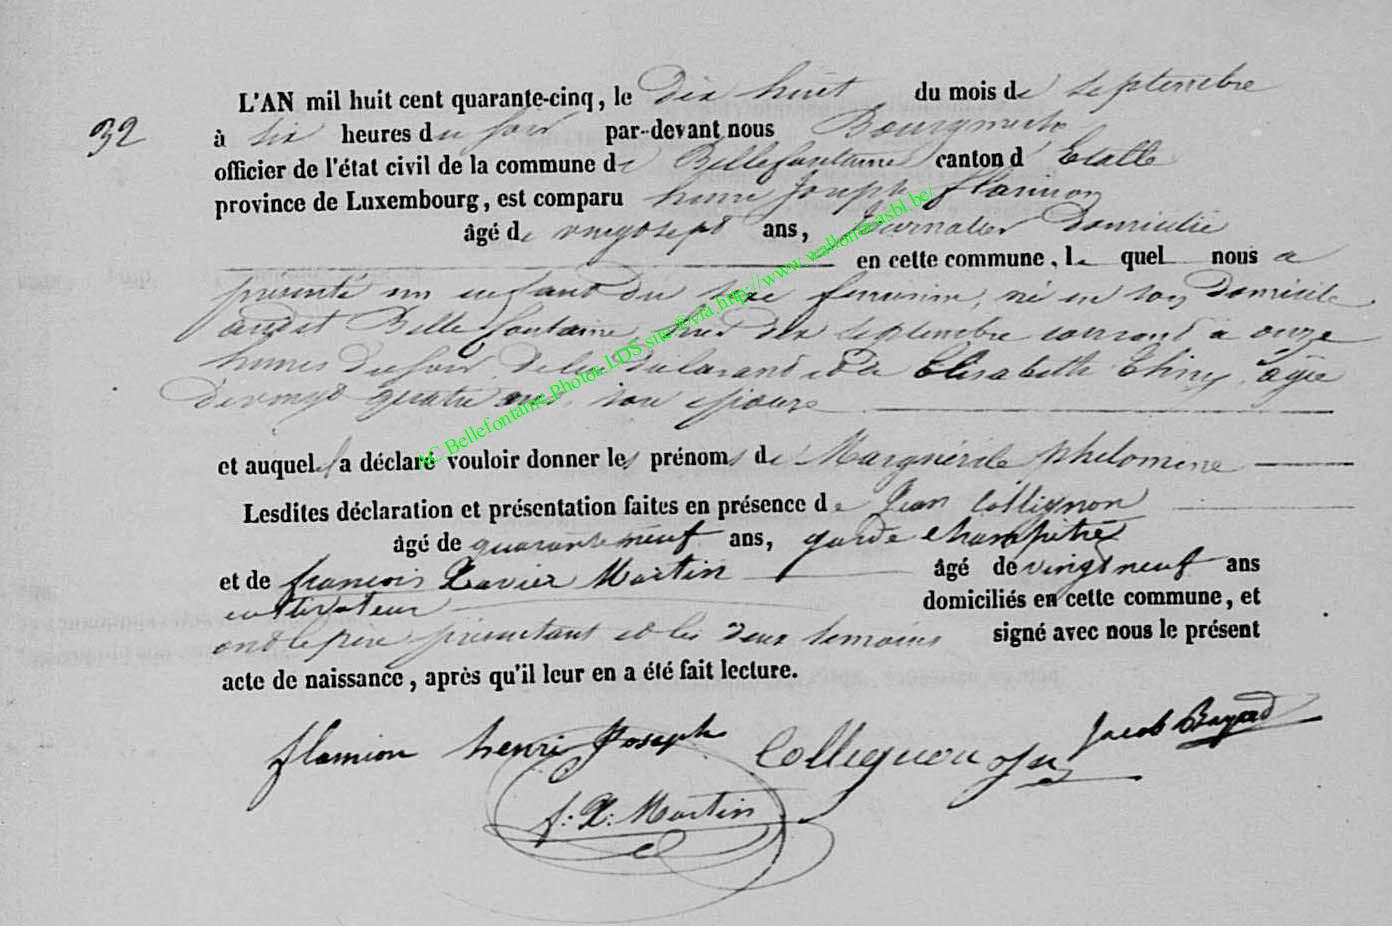 L'AN mil huit cent quarante-cinq, le dix huit du mois de septembre
32
à six heures du soir par-devant nous Bourgmestre
officier de l'état civil de la commune de Bellefontaine canton d'Etalle
province de Luxembourg, est comparu henri Joseph flamion
âgé de vingt sept ans, Journalier Domicilié
en cette commune, le quel nous a
présenté un enfant du sexe feminin, né en son Domicile
audit Bellefontaine dix septembre courant à onze
heures du soir, de lui déclarant et de Elisabeth Thiry, âgée
de vingt quatre ans, son épouse
et auquel il a déclaré vouloir donner les prénoms de Marguérite philomene
Lesdites déclaration et présentation faites en présence de Jean Collignon
âgé de quarante neuf ans, garde champêtre
et de francois Xavier Martin âgé de vingt neuf ans
cultivateur domiciliés en cette commune, et
ont le père présentant et les deux temoins signé avec nous le présent
acte de naissance, après qu'il leur en a été fait lecture.
flamion henri Joseph Collignon Jn Jacob Bayard
f: X: Martin
AC Bellefontaine Photos LDS site via http://www.wallonia-asbl.be/